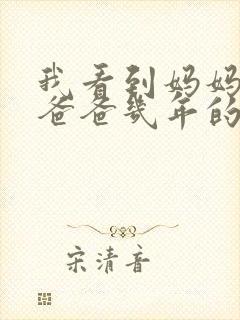 我看到妈妈
爸爸几年的
宋清音